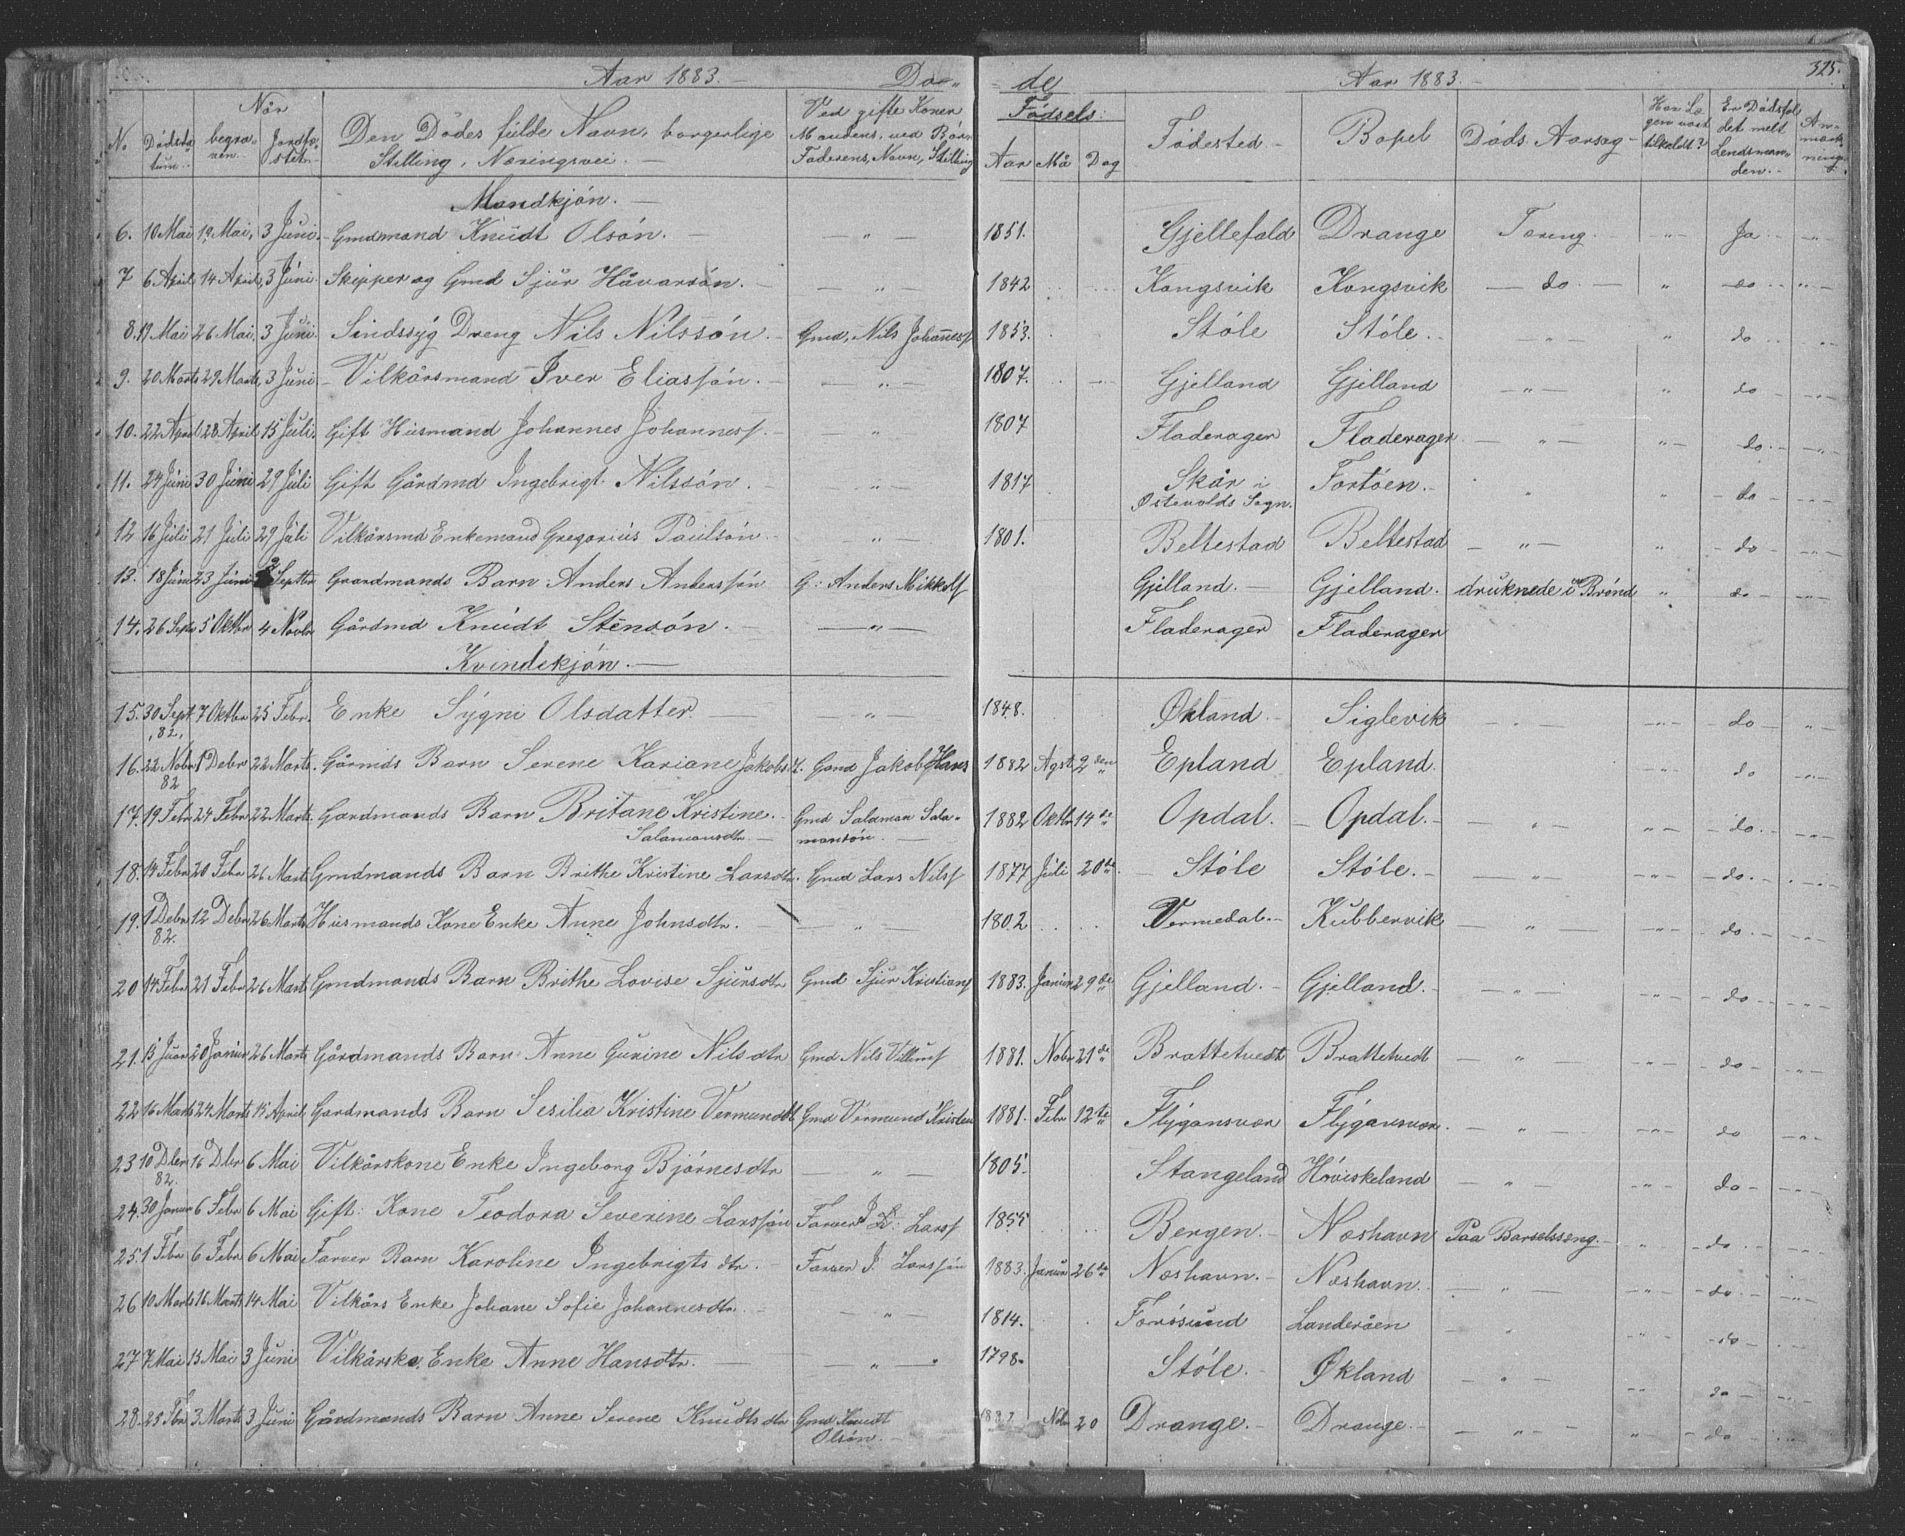 Aar 1883. Dö- de Aar 1883. 325.
No Dödsda- tum. Når begra- ven. Jordfæ- stetn. Den Dödes fulde Navn, borgerlige Stilling, Næringsvei. Ved gifte Koner Mandens, ved Börn Faderens, Navn, Stilling Födsels: Aar Må Dag Födested Bopel Döds Aarsag Har Læ- gen vært tilkaldt? Er Dödsfal det melt Lendsman- den. An- mærk- ning
Mandkjön.
6. 10 Mai 19 Mai, 3 Juni. Gmdmand Knudt Olsön. " 1851. Gjellefald Drange Tæring. " Ja "
7 6 April 14 April, 3 Juni Skipper og Gmd Sjur Håvarsön. " 1842 Kongsvik Kongsvik do " do "
8. 19 Mai 26 Mai, 3 Juni Sindssyg Dreng Nils Nilssön. Gmd, Nils Johannesf 1853. Stöle Stöle. " do "
9. 20 Marts 29 Marts, 3 Juni Vilkårsmand Iver Eliassön. " 1807. Gjelland Gjelland " " do
10. 22 April 28 April 15 Juli. Gift Husmand Johannes Johannesf. " 1807 Fladerager Fladerager " " do. "
11. 24 Juni 30 Juni 29 Juli Gift Gårdmd Ingebrigt Nilssön. " 1817 Skår i Östevolds Sogn. Fortöen. " " do "
12 16 Juli 21 Juli 29 Juli Vilkårsmd Enkemand Gregorius Paulsön. " 1801. Beltestad Beltestad " " do "
13. 18 Juni 23 Juni 2 Septbr Graardmands Barn Anders Anderssön G: Anders Mikkelsf Gjelland. Gjelland. druknede i en Brönd " do "
14. 26 Septr 5 Oktbr 4 Novbr Gårdmd Knudt Stensön. " Fladerager Fladerager
Kvindekjön.
15. 30 Sept. 82, 7 Oktbr 25 Febr. Enke Sygni Olsdatter " 1848. Økland Siglevik " " do "
16. 22 Nobr 82 1 Debr 22 Marts. Gårmds Barn Serene Kariane Jakobs Gmd Jakob Hans 1882 Agst. 2 den Epland Epland. " do "
17. 19 Febr 24 Febr 22 Marts. Gardmands Barn Britane Kristine Salamonsdtr. Gmd Salamon Sala- monsön. 1882 Oktbr 14 de Opdal. Opdal. " " do "
18. 14 Febr 20 Febr 26 Marts Gmdmands Barn Brithe Kristine Larsdtr. Gmd Lars Nilsf 1877 Juli 20 de Stöle Stöle. " " do "
19. 1 Debr 82. 12 Debr 26 Marts Husmands Kone Enke Anne Johnsdtr. " 1802 Vermedal. Kubbervik " " do "
20 14 Febr 21 Febr 26 Marts Gmdmands Barn Brithe Lovise Sjursdtr Gmd Sjur Kristiansf 1883. Januar 29 de Gjelland. Gjelland. " " do "
21. 13 Juar 20 Januar 26 Marts Gårdmands Barn Anne Gurine Nilsdtr Gmd Nils Villumsf 1881. Nobr 21 de Brattetvedt Brattetvedt " " do "
22 16 Marts 24 Marts 15 April Gardmands Barn Sesilia Kristine Vermundt Gmd Vermund Kristen 1881. Febr 12 te Flygansvær Flygansvær " " do "
23 10 Dbr 82. 16 Dbr 6 Mai Vilkårskone Enke Ingeborg Björnesdtr " 1805. Stangeland Höviskeland " " do "
24. 30 Januar 6 Febr 6 Mai Gift: Kone Teodora Severine Larssön Farver I L: Larsf 1855 Bergen. Næshavn Paa Barselsseng. " do "
25. 1 Febr 6 Febr 6 Mai Farver Barn Karoline Ingebrigts dtr. Farver I. Larssön 1883. Januar 26 de Næshavn. Næshavn. " " do. "
26 10 Marts 16 Marts 14 Mai Vilkårs Enke Johane Sofie Johannesdtr. " 1814. Forösund Landeröen " " do "
27 7 Mai 13 Mai 3 Juni Vilkårske. Enke Anne Hansdtr. " 1798. Stöle. Økland " " do "
28. 25 Fbr 3 Marts 3 Juni Gårdmands Barn Anne Serene Knudts dtr Gmd Knudt Olsön. 1882 Nobr 20 Drange. Drange. " " do